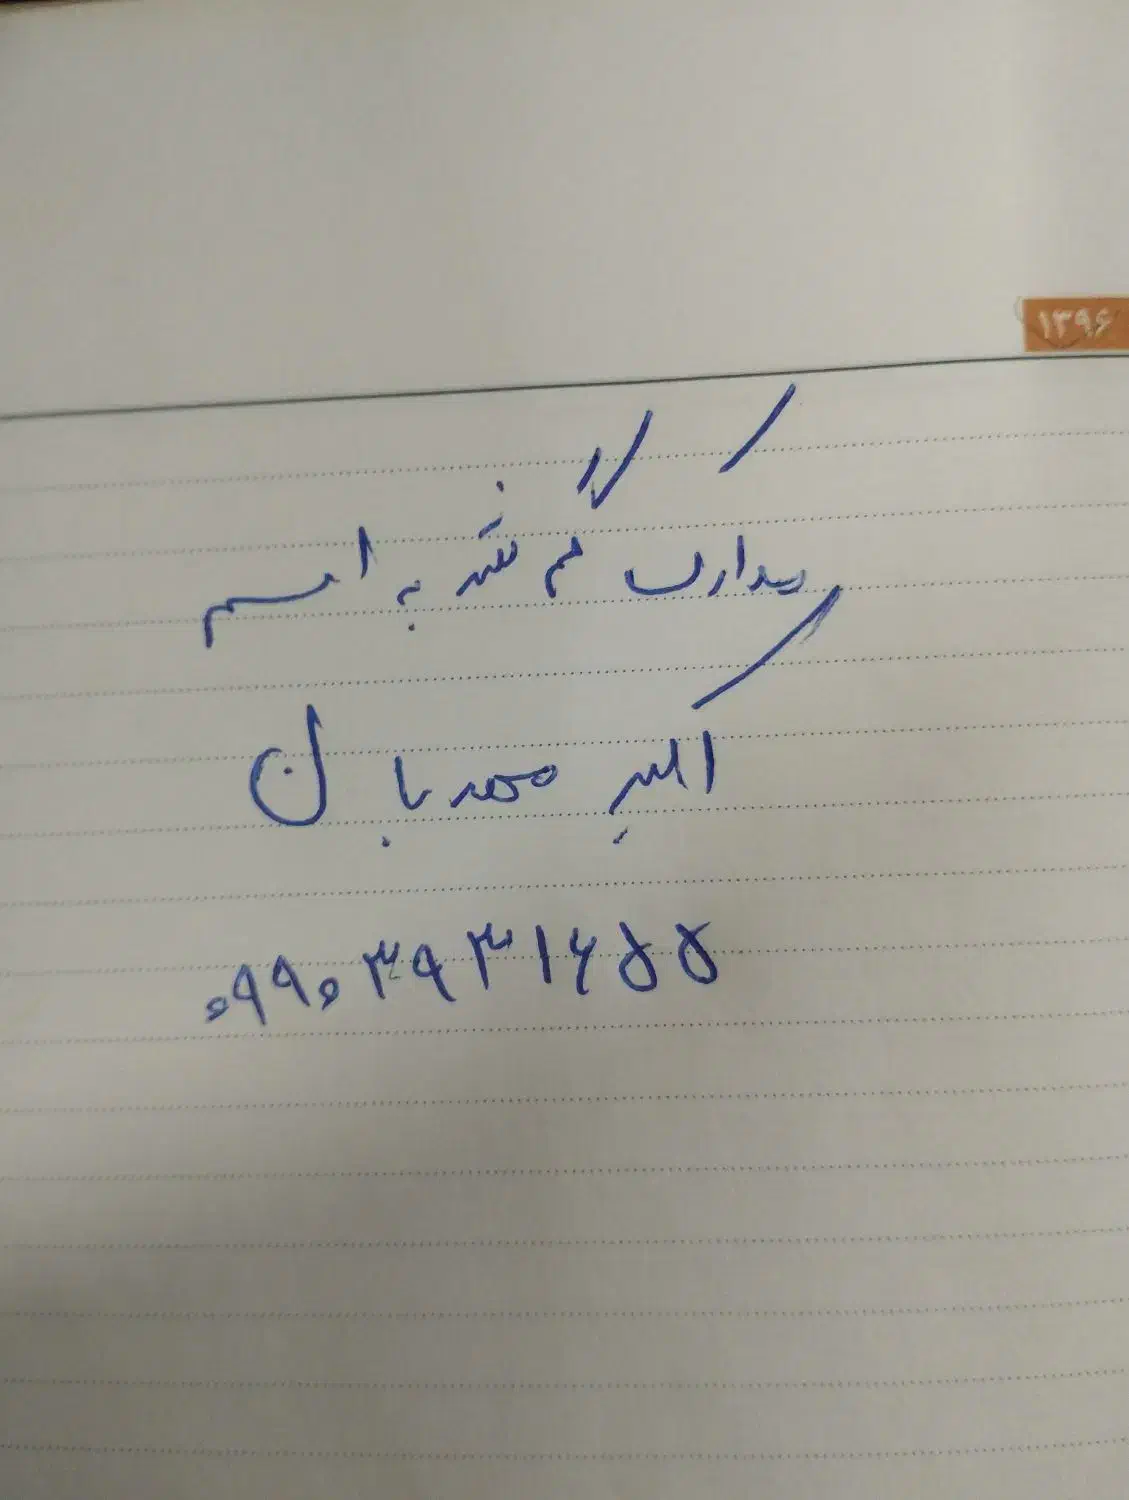 ۱۳۹۶
مدارک گم شده به اسم
اکبر محمد
۰۹۹۰۳۹۳۱۶۵۵